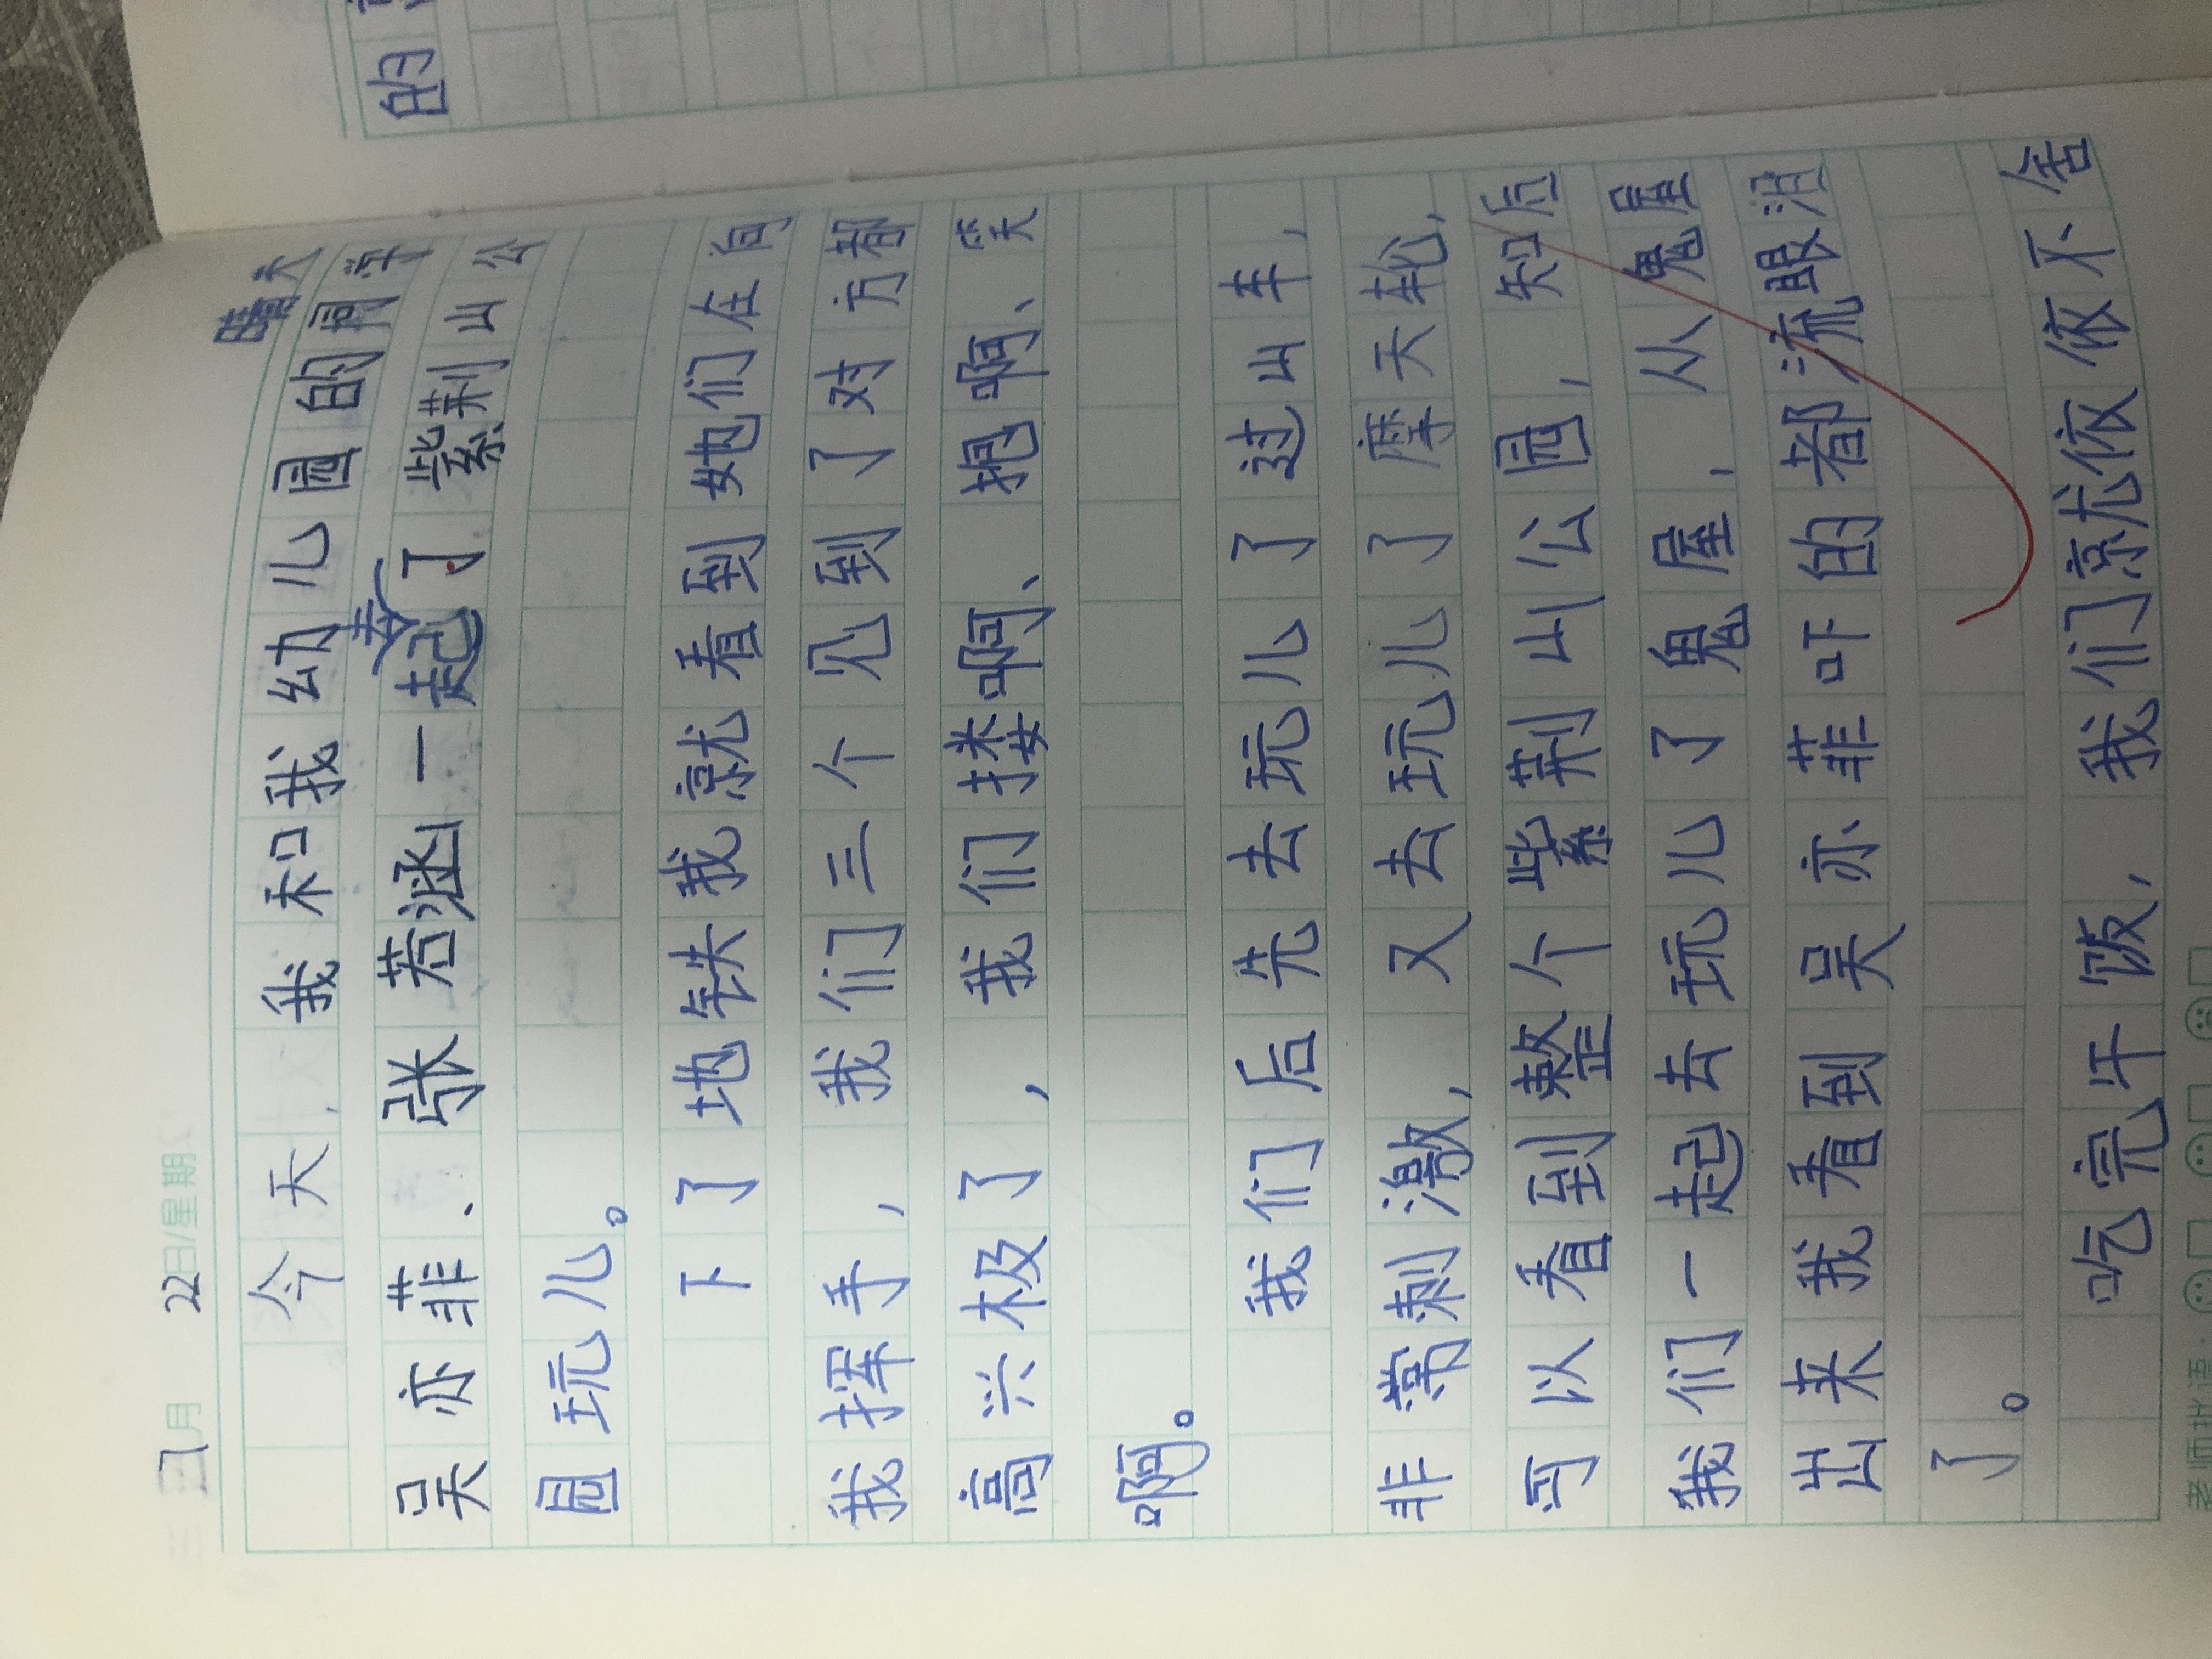 7月22日/星期 晴天
今天,我和我幼儿园的同学
吴亦菲、张若涵一起去了紫荆山公
园玩儿。
下了地铁我就看到她们在向
我挥手,我们三个见到了对方都
高兴极了,我们搂啊、抱啊、笑
啊。
我们后先去玩儿了过山车,
非常刺激,又去玩儿了摩天轮,
可以看到整个紫荆山公园,知后
我们一起去玩儿了鬼屋,从鬼屋
出来我看到吴亦菲吓的都流眼泪
了。
吃完午饭,我们就依依不舍
老师批语:
的